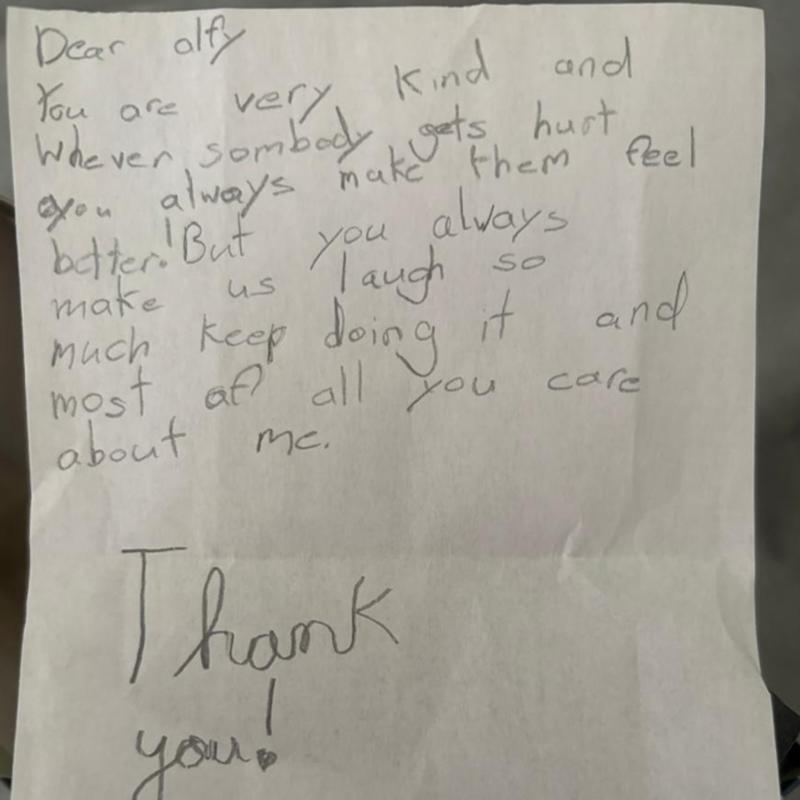 Dear alfy
You are very kind and
Whever sombody gets hurt
you always make them feel
better!But you always
make us laugh so
much keep doing it and
most of all you care
about me.
Thank
you!